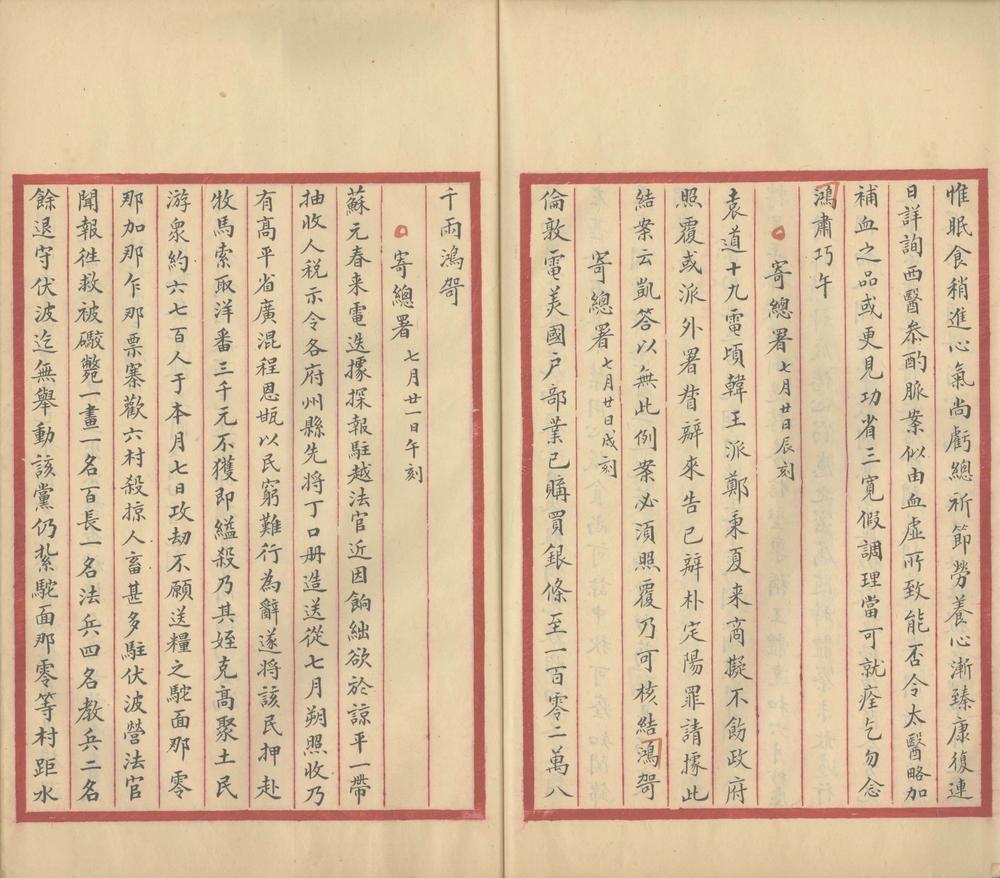 惟眠食稍進心氣尚虧總祈節勞養心漸臻康復連
日詳詢西醫叅酌脈案似由血虛所致能否令太醫略加
補血之品或更見功省三寬假調理當可就痊乞勿念
鴻肅巧午
寄總署七月廿日辰刻
袁道十九電頃韓王派鄭秉夏来商擬不飭政府
照覆或派外署督辦來告已辦朴定陽罪請據此
結案云凱答以無此例案必須照覆乃可核結鴻哿
寄總署七月廿日戌刻
倫敦電美國户部業已購買銀條至一百零二萬八
千兩鴻哿
寄總署七月廿一日午刻
蘇元春来電迭據探報駐越法官近因餉絀欲於諒平一帶
抽收人税示令各府州縣先將丁口册造送從七月朔照收乃
有高平省廣混程恩甎以民窮難行為辭遂將該民押赴
牧馬索取洋番三千元不獲即縊殺乃其姪克高聚土民
游衆約六七百人于本月七日攻劫不願送糧之駝面那零
那加那乍那票寨歡六村殺掠人畜甚多駐伏波營法官
聞報徃救被礮斃一畫一名百長一名法兵四名教兵二名
餘退守伏波迄無舉動該黨仍紮駝面那零等村距水